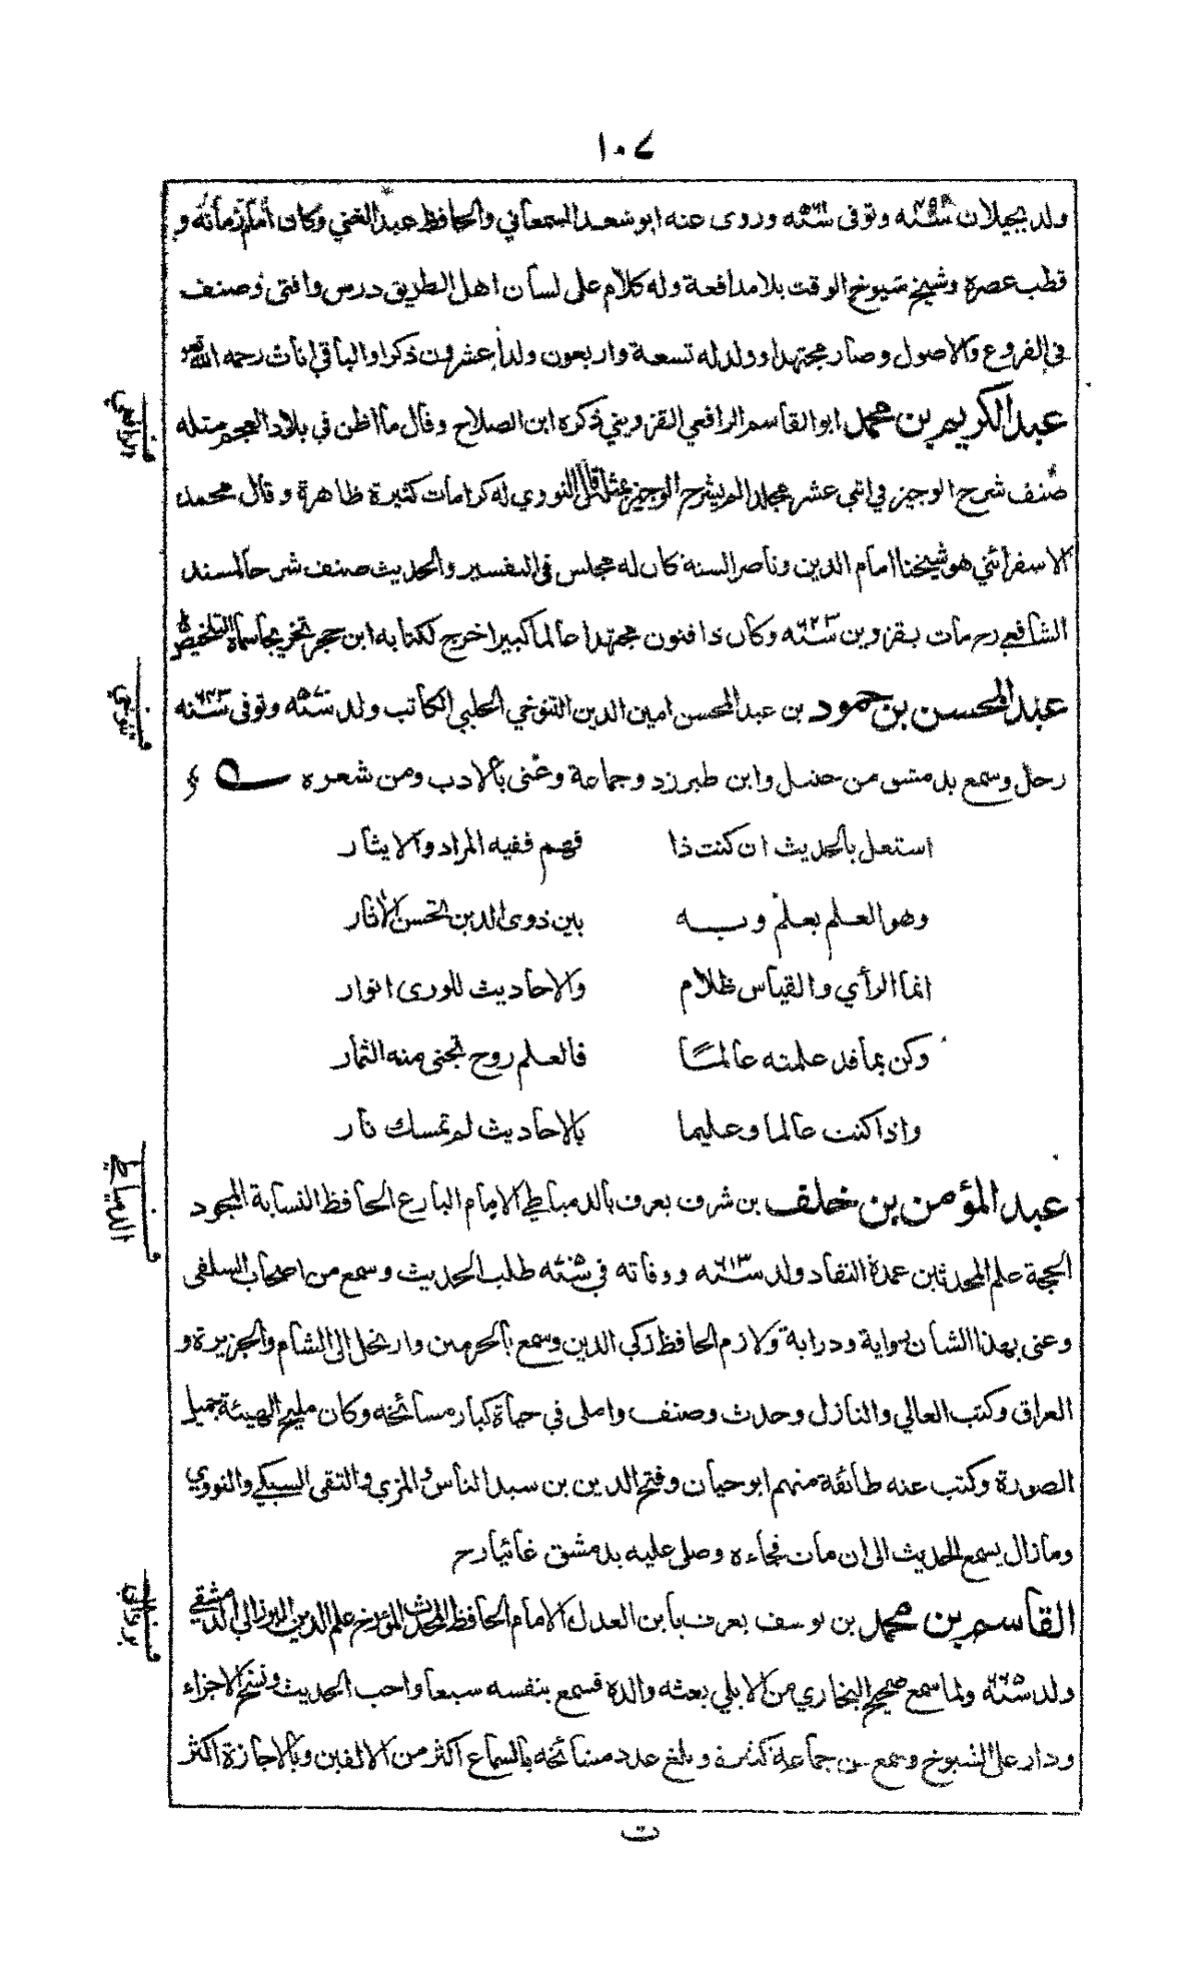 ١٠٧
ولد بجيلان سنة وتوفى سنة ٥٦١ وروى عنه ابو سعد السمعاني والحافظ عبد الغني وكان امام زمانه و
قطب عصره وشيخ شيوخ الوقت بلا مدافعة وله كلام على لسان اهل الطريق درس وافتى وصنف
في الفروع والاصول وصار مجتهدا وولد له تسعة واربعون ولدا عشرون ذكرا والباقي اناث رحمه الله تعه
عبد الكريم بن محمد ابو القاسم الرافعي القزويني ذكره ابن الصلاح وقال ما اظن في بلاد العجم مثله
صنف شرح الوجيز في اثني عشر مجلدا لم يشرح الوجيز بمثله قال النووي له كرامات كثيرة ظاهرة وقال محمد
الاسفرائني هو شيخنا امام الدين وناصر السنة كان له مجلس في التفسير والحديث صنف شرحا لمسند
الشافعي رح مات بقزوين سنة ٦٢٣ وكان ذا فنون مجتهدا عالما كبيرا خرج لكتابه ابن حجر تخريجا سماه التلخيص
عبد المحسن بن حمود بن عبد المحسن امين الدين التنوخي الحلبي الكاتب ولد سنة ٥٧٠ وتوفى سنة ٦٤٣
رحل وسمع بدمشق من حنبل وابن طبرزد وجماعة وعنى بالادب ومن شعره
استعل بالحديث ان كنت ذا فهم ففيه المراد والايثار
وهو العلم بعلم وبه بين ذوى الدين تحسن الآثار
انما الرأي والقياس ظلام والاحاديث للورى انوار
وكن بما قد علمته عالما فالعلم روح تجنى منه الثمار
واذا كنت عالما وعليما بالاحاديث لم تمسك نار
عبد المؤمن بن خلف بن شرف يعرف بالدمياطي الامام البارع الحافظ النسابة المجود
الحجة علم المحدثين عمدة النقاد ولد سنة ٦١٣ ووفاته في سنة طلب الحديث وسمع من اصحاب السلفى
وعنى بهذا الشأن رواية ودراية ولازم الحافظ زكي الدين وسمع بالحرمين وارتحل الى الشام والجزيرة و
العراق وكتب العالي والنازل وحدث وصنف واملى في حياة كبار مسائخه وكان مليح الهيئة جميل
الصورة وكتب عنه طائفة منهم ابو حيان وفتح الدين بن سيد الناس والمزي والتقى السبكي والنووي
وما زال يسمع الحديث الى ان مات فجاءه وصلى عليه بدمشق غائبا رح
القاسم بن محمد بن يوسف يعرف بابن العدل الامام الحافظ المحدث المؤرخ علم الدين البرزالي الدمشقي
ولد سنة ٦٦٥ ولما سمع صحيح البخاري من الابلي بعثه والده فسمع بنفسه سبعا واحب الحديث ونسخ الاجزاء
ودار على الشيوخ وسمع من جماعة كثيرة وبلغ عدد مشائخه بالسماع اكثر من الالفين وبالاجازة اكثر
ت
ف الرافعي
ف تنوخي
ف الدمياطي